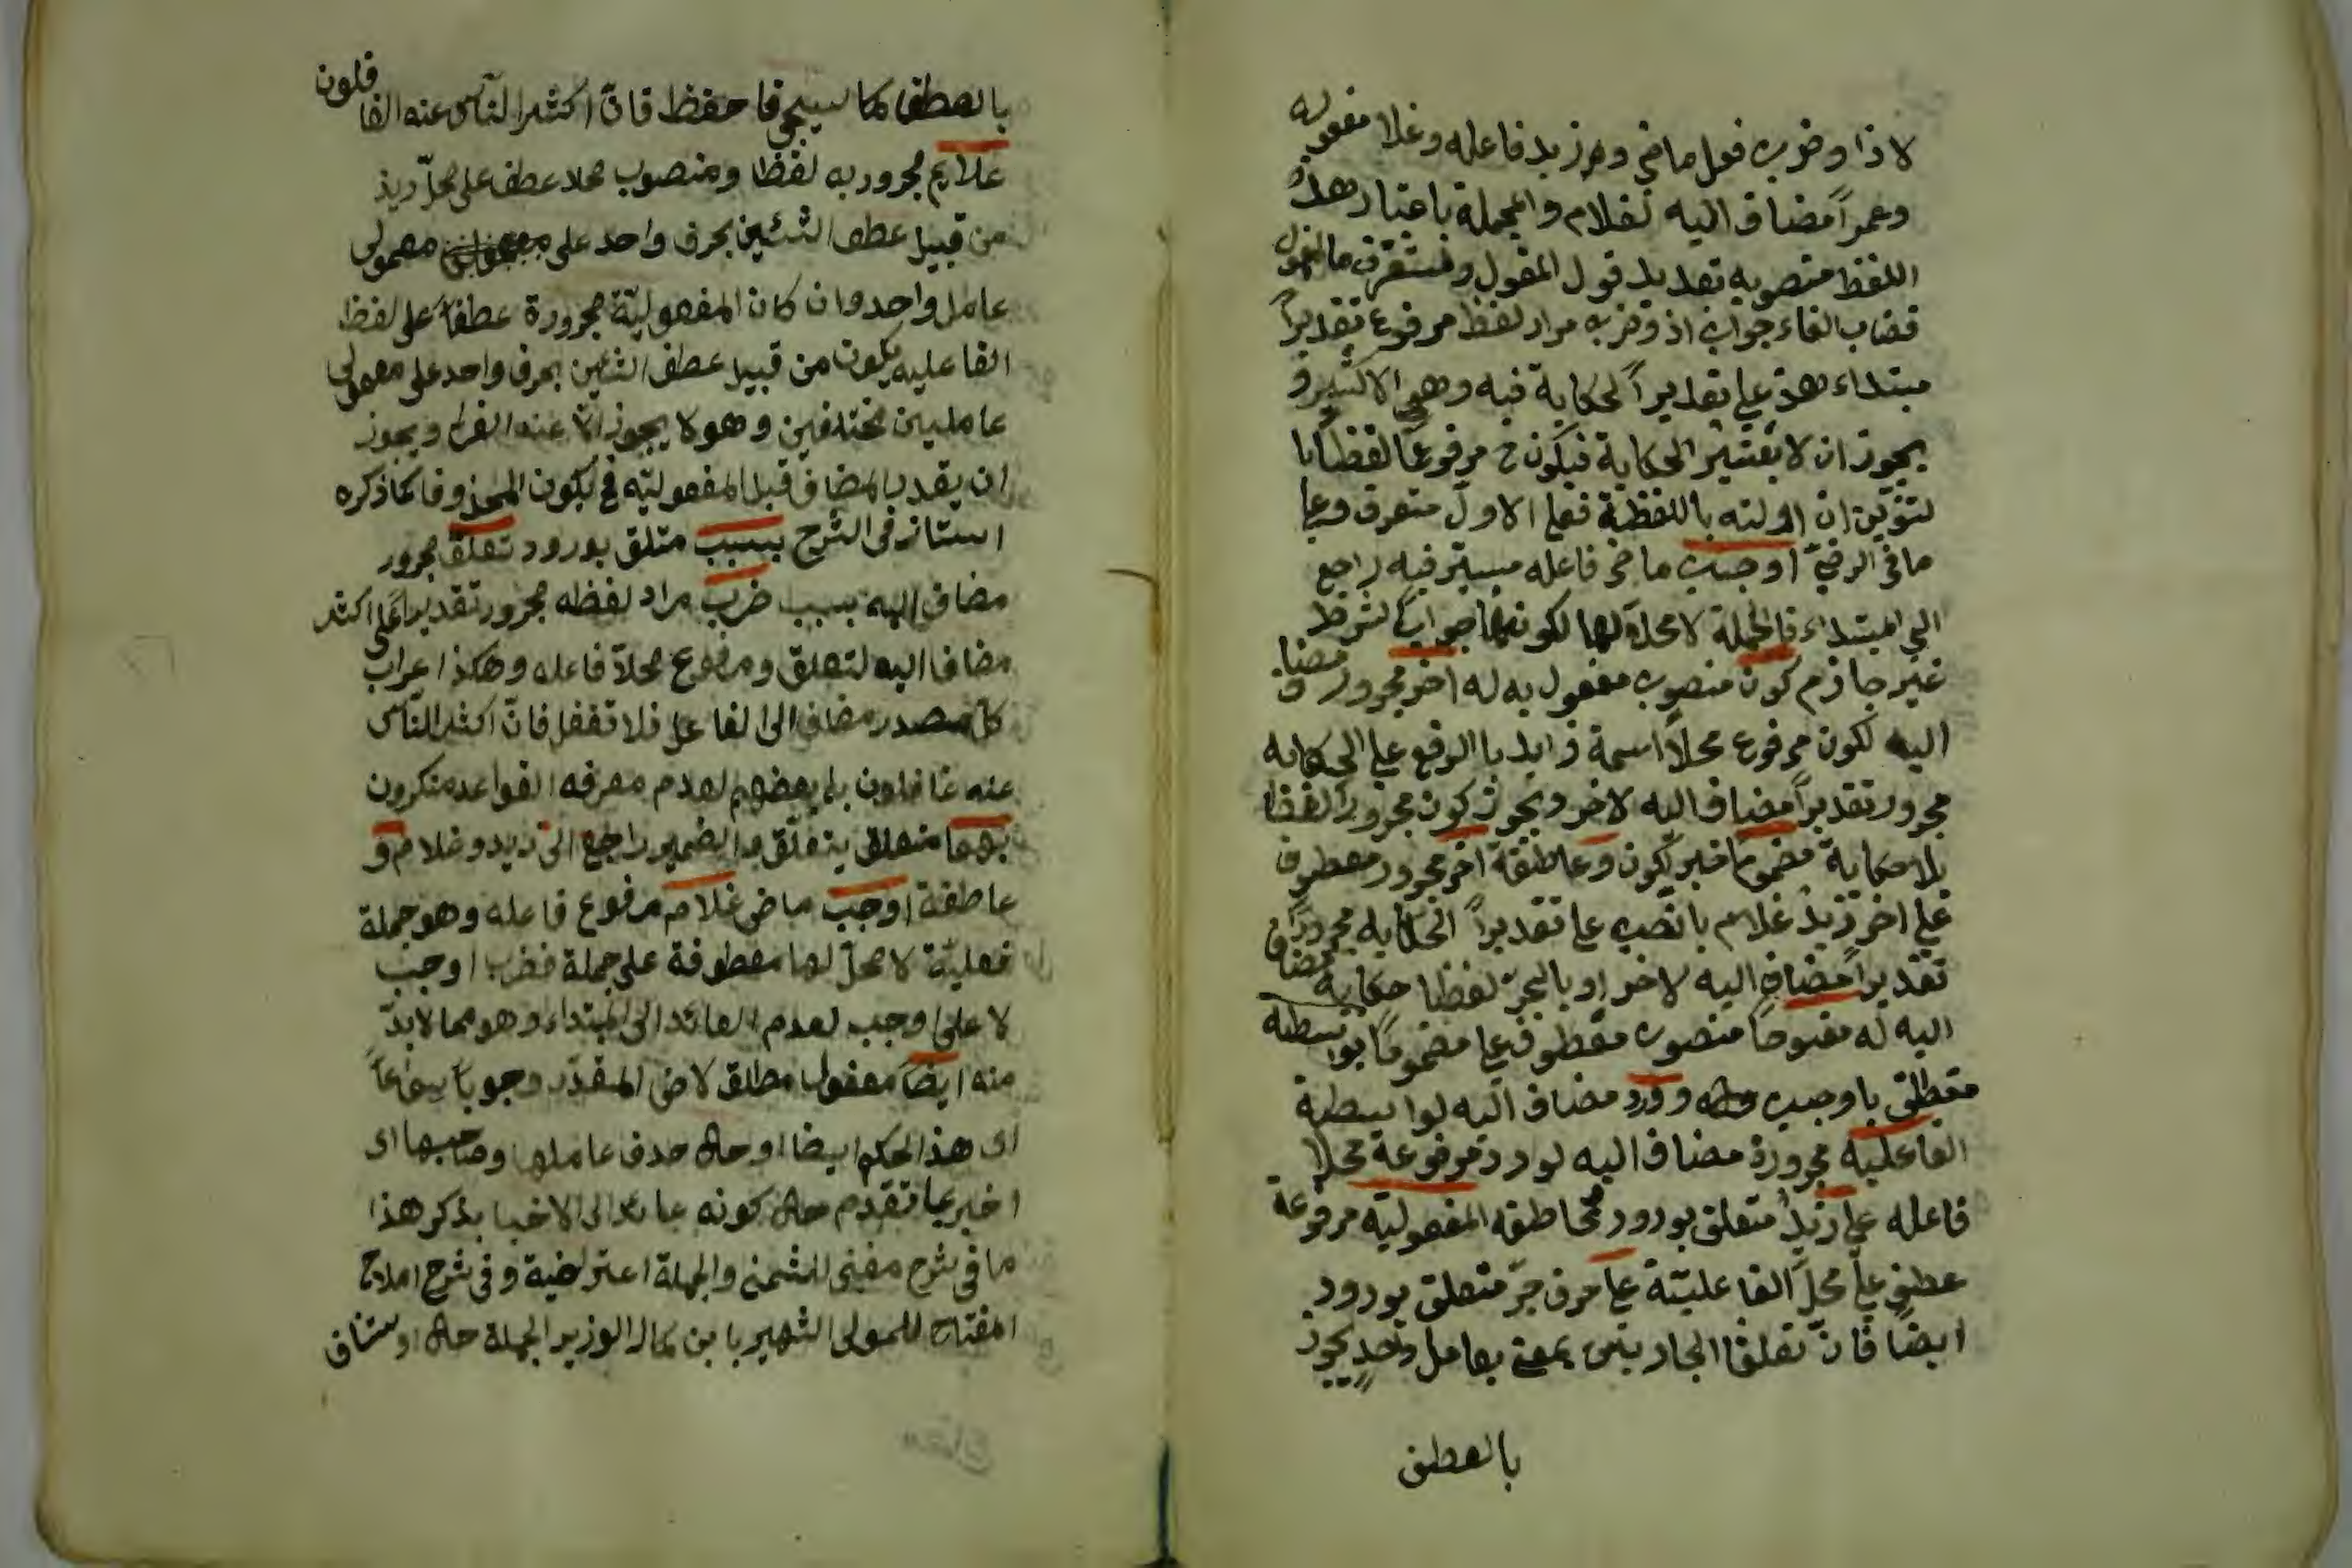 لاذا وضرب فعل ماض وزيد فاعله وغلا مفعوله
وعمراً مضاف اليه لغلام والجملة باعتبار هذا
اللفظ منصوبه تقديرا قول المقول وستعرف ما المقول
فضاب الفاء جواب اذ وضرب مراد لفظ مرفوع تقديراً
مبتداء هذ على تقديراً لحكاية فيه وهى الاكثير و
يجوز ان لا يعتبر الحكاية فيكون ح مرفوعا لفظا با
لتنوين ان اولته باللفظية فعلى الاول منصرف وعلى
ما فى الرضى اوجب ماض فاعله مستتر فيه راجع
الى المبتداء فالجملة لا محل لها لكونها جواب لشرط
غير جازم كون منصوب مفعول به له اخر مجرور مضاف
اليه لكون مرفوع محلا اسمة زايد با الرفع على الحكايه
مجرور تقديراً مضاف اليه لاخر ويجوز كون مجروراً لفظا
بلا حكاية مضموما خبر لكون وعاطفة اخر مجرور معطوف
على اخر زيد غلام بالنصب على تقديراً الحكايه مجروراً
تقديراً مضاف اليه لاخر او بالجر لفظا حكاية مضاف
اليه له مفتوحاً منصوب معطوف على مضموماً بواسطة
متعلق باوجب ورود مضاف اليه لواسطة
الفاعلية مجرورة مضاف اليه لورد مرفوعة محلا
فاعله على زيد متعلق بورود عاطفه المفعوليه مرفوعة
عطف على محل الفاعلية على حرف جر متعلق بورود
ايضا فان تعلق الجار بمعنى بعامل واحد يجوز
بالعطف
بالعطف كما سيجى فاحفظ فان اكثر الناس عنه الغافلون
غلام مجرور به لفظا ومنصوب محلا عطف على محل زيد
من قبيل عطف الشئين بحرف واحد على معمولى
عامل واحد وان كان المفعولية مجرورة عطفا على لفظ
الفاعليه يكون من قبيل عطف الشئين بحرف واحد على معمولى
عاملين مختلفين وهو لا يجوز الا عند الفراء ويجوز
ان يقدر المضاف قبل المفعوليه فح يكون المحذوف كما ذكره
استاذ فى الشرح بسبب متلق بورود تعلق مجرور
مضاف اليه بسبب ضرب مراد لفظه مجرور تقديرا على اكثر
مضاف اليه لتعلق ومرفوع محلا فاعله وهكذا اعراب
كل مصدر مضاف الى الفاعل فلا تغفل فان اكثر الناس
عنه غافلون بل بعضهم لعدم معرفه القواعد منكرون
بهما متعلق يتعلق والضمير راجع الى زيد وغلام و
عاطفة اوجب ماض غلام مرفوع فاعله وهو جملة
فعلية لا محل لها معطوفة على جملة فضرب اوجب
لا على اوجب لعدم العائد الى المبتداء وهو مما لا بد
منه ايضا مفعول مطلق لاض المقدر وجوبا سماعاً
اى هذا الحكم ايضا او حال حذف عاملها وصاحبها اى
اخبر عما تقدم حال كونه عائد الى الاخبا بذكر هذا
ما فى شرح مغنى للشمنى والجملة اعتراضية وفى شرح املاح
المفتاح للمولى الشهير بابن كمال الوزير الجملة حال او ستناف